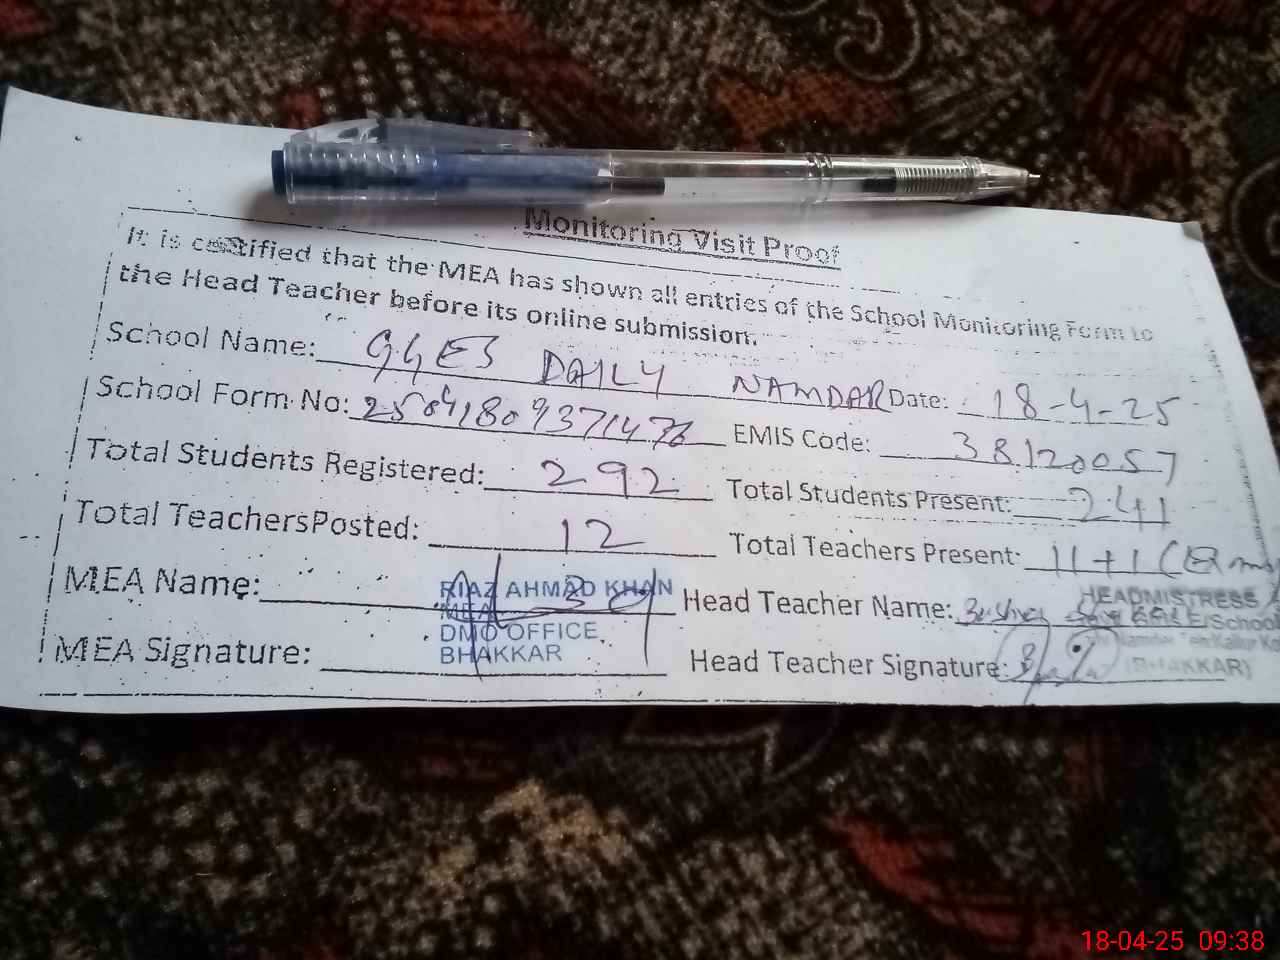 Monitoring Visit Proof
It is certified that the MEA has shown all entries of the School Monitoring Form to
the Head Teacher before its online submission.
School Name: GGES DAILY NAMDAR Date: 18-4-25
School Form No: EMIS Code: 38120057
Total Students Registered: 292 Total Students Present: 241
Total TeachersPosted: 12 Total Teachers Present: 11+1
MEA Name: RIAZ AHMAD KHAN Head Teacher Name: HEADMISTRESS
MEA
DMO OFFICE
BHAKKAR
MEA Signature: Head Teacher Signature: (BHAKKAR)
18-04-25 09:38